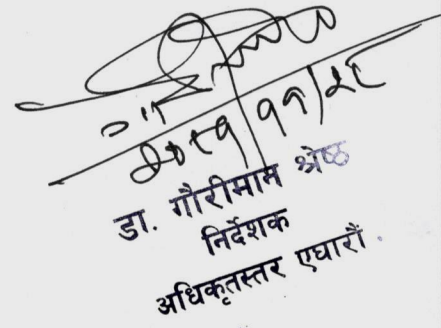 २०८१/११/२८
डा. गौरीमाम श्रेष्ठ
निर्देशक
अधिकृतस्तर एघारौं.